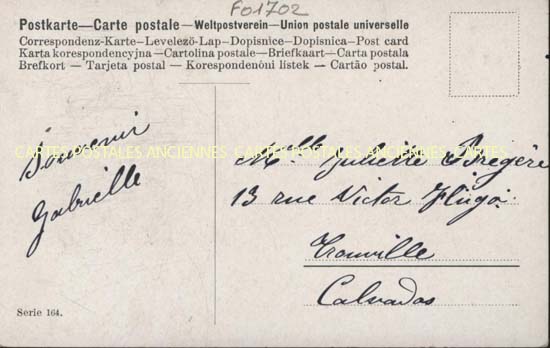 F01702
Postkarte—Carte postale—Weltpostverein—Union postale universelle
Correspondenz-Karte—Levelező-Lap—Dopisnice—Dopisnica—Post card
Karta korespondencyjna—Cartolina postale—Briefkaart—Carta postala
Brefkort — Tarjeta postal — Korespondenční lístek — Cartão postal.
Souvenir
Gabrielle
CARTES POSTALES ANCIENNES CARTES POSTALES ANCIENNES
Mlle Juliette Bregère
13 rue Victor Hugo.
Trouville
Calvados
Serie 164.